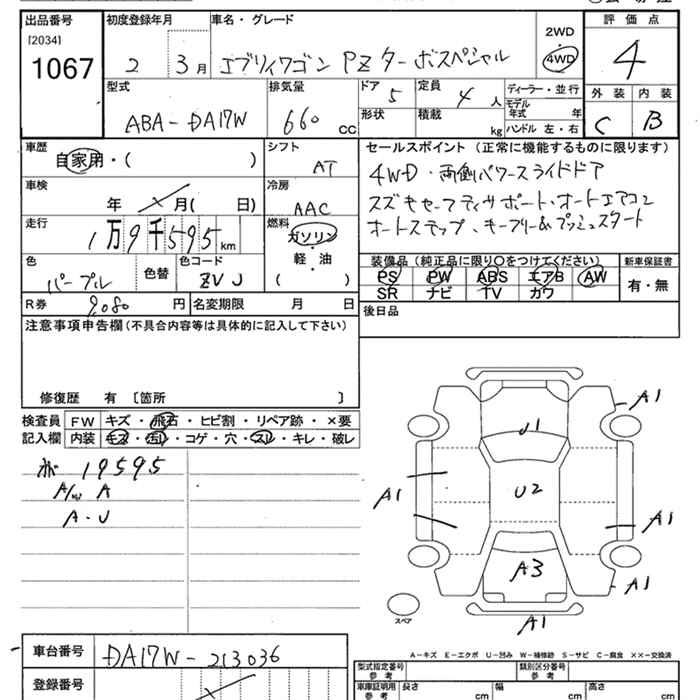 出品番号
[2034]
1067
初度登録年月
2 3月
車名・グレード
エブリイワゴン PZターボスペシャル
2WD
4WD
評価点
4
外装 内装
C B
型式
ABA-DA17W
排気量
660 CC
ドア 5
定員 4 人
ディーラー・並行
モデル年式 年
形状
積載 kg
ハンドル 左・右
車歴
自家用・( )
シフト
AT
セールスポイント (正常に機能するものに限ります)
4WD・両側パワースライドドア
スズキセーフティサポート・オートエアコン
オートステップ、キーフリー&プッシュスタート
車検
年 月( 日)
冷房
AAC
走行
1万9千595km
燃料
ガソリン
軽・油
( )
色
パープル
色替
色コード
ZVJ
装備品 (純正品に限り○をつけてください)
新車保証書
PS PW ABS エアB AW
有・無
SR ナビ TV ガワ
R券 9,080 円
名変期限 月 日
後日品
注意事項申告欄 (不具合内容等は具体的に記入して下さい)
修復歴 有 [箇所 ]
検査員
記入欄
FW キズ・飛石・ヒビ割・リペア跡・×要
内装 キズ・汚レ・コゲ・穴・スレ・キレ・破レ
19595
A/W A
A・U
A1
U1
A1
U2
A1
A3
A1
A1
スペア
A-キズ E-エクボ U-凹み W-補修跡 S-サビ C-腐食 ××-交換済
車台番号
DA17W-213036
登録番号
型式指定番号
参考
類別区分番号
参考
車庫証明用
参考
長さ cm
幅 cm
高さ cm